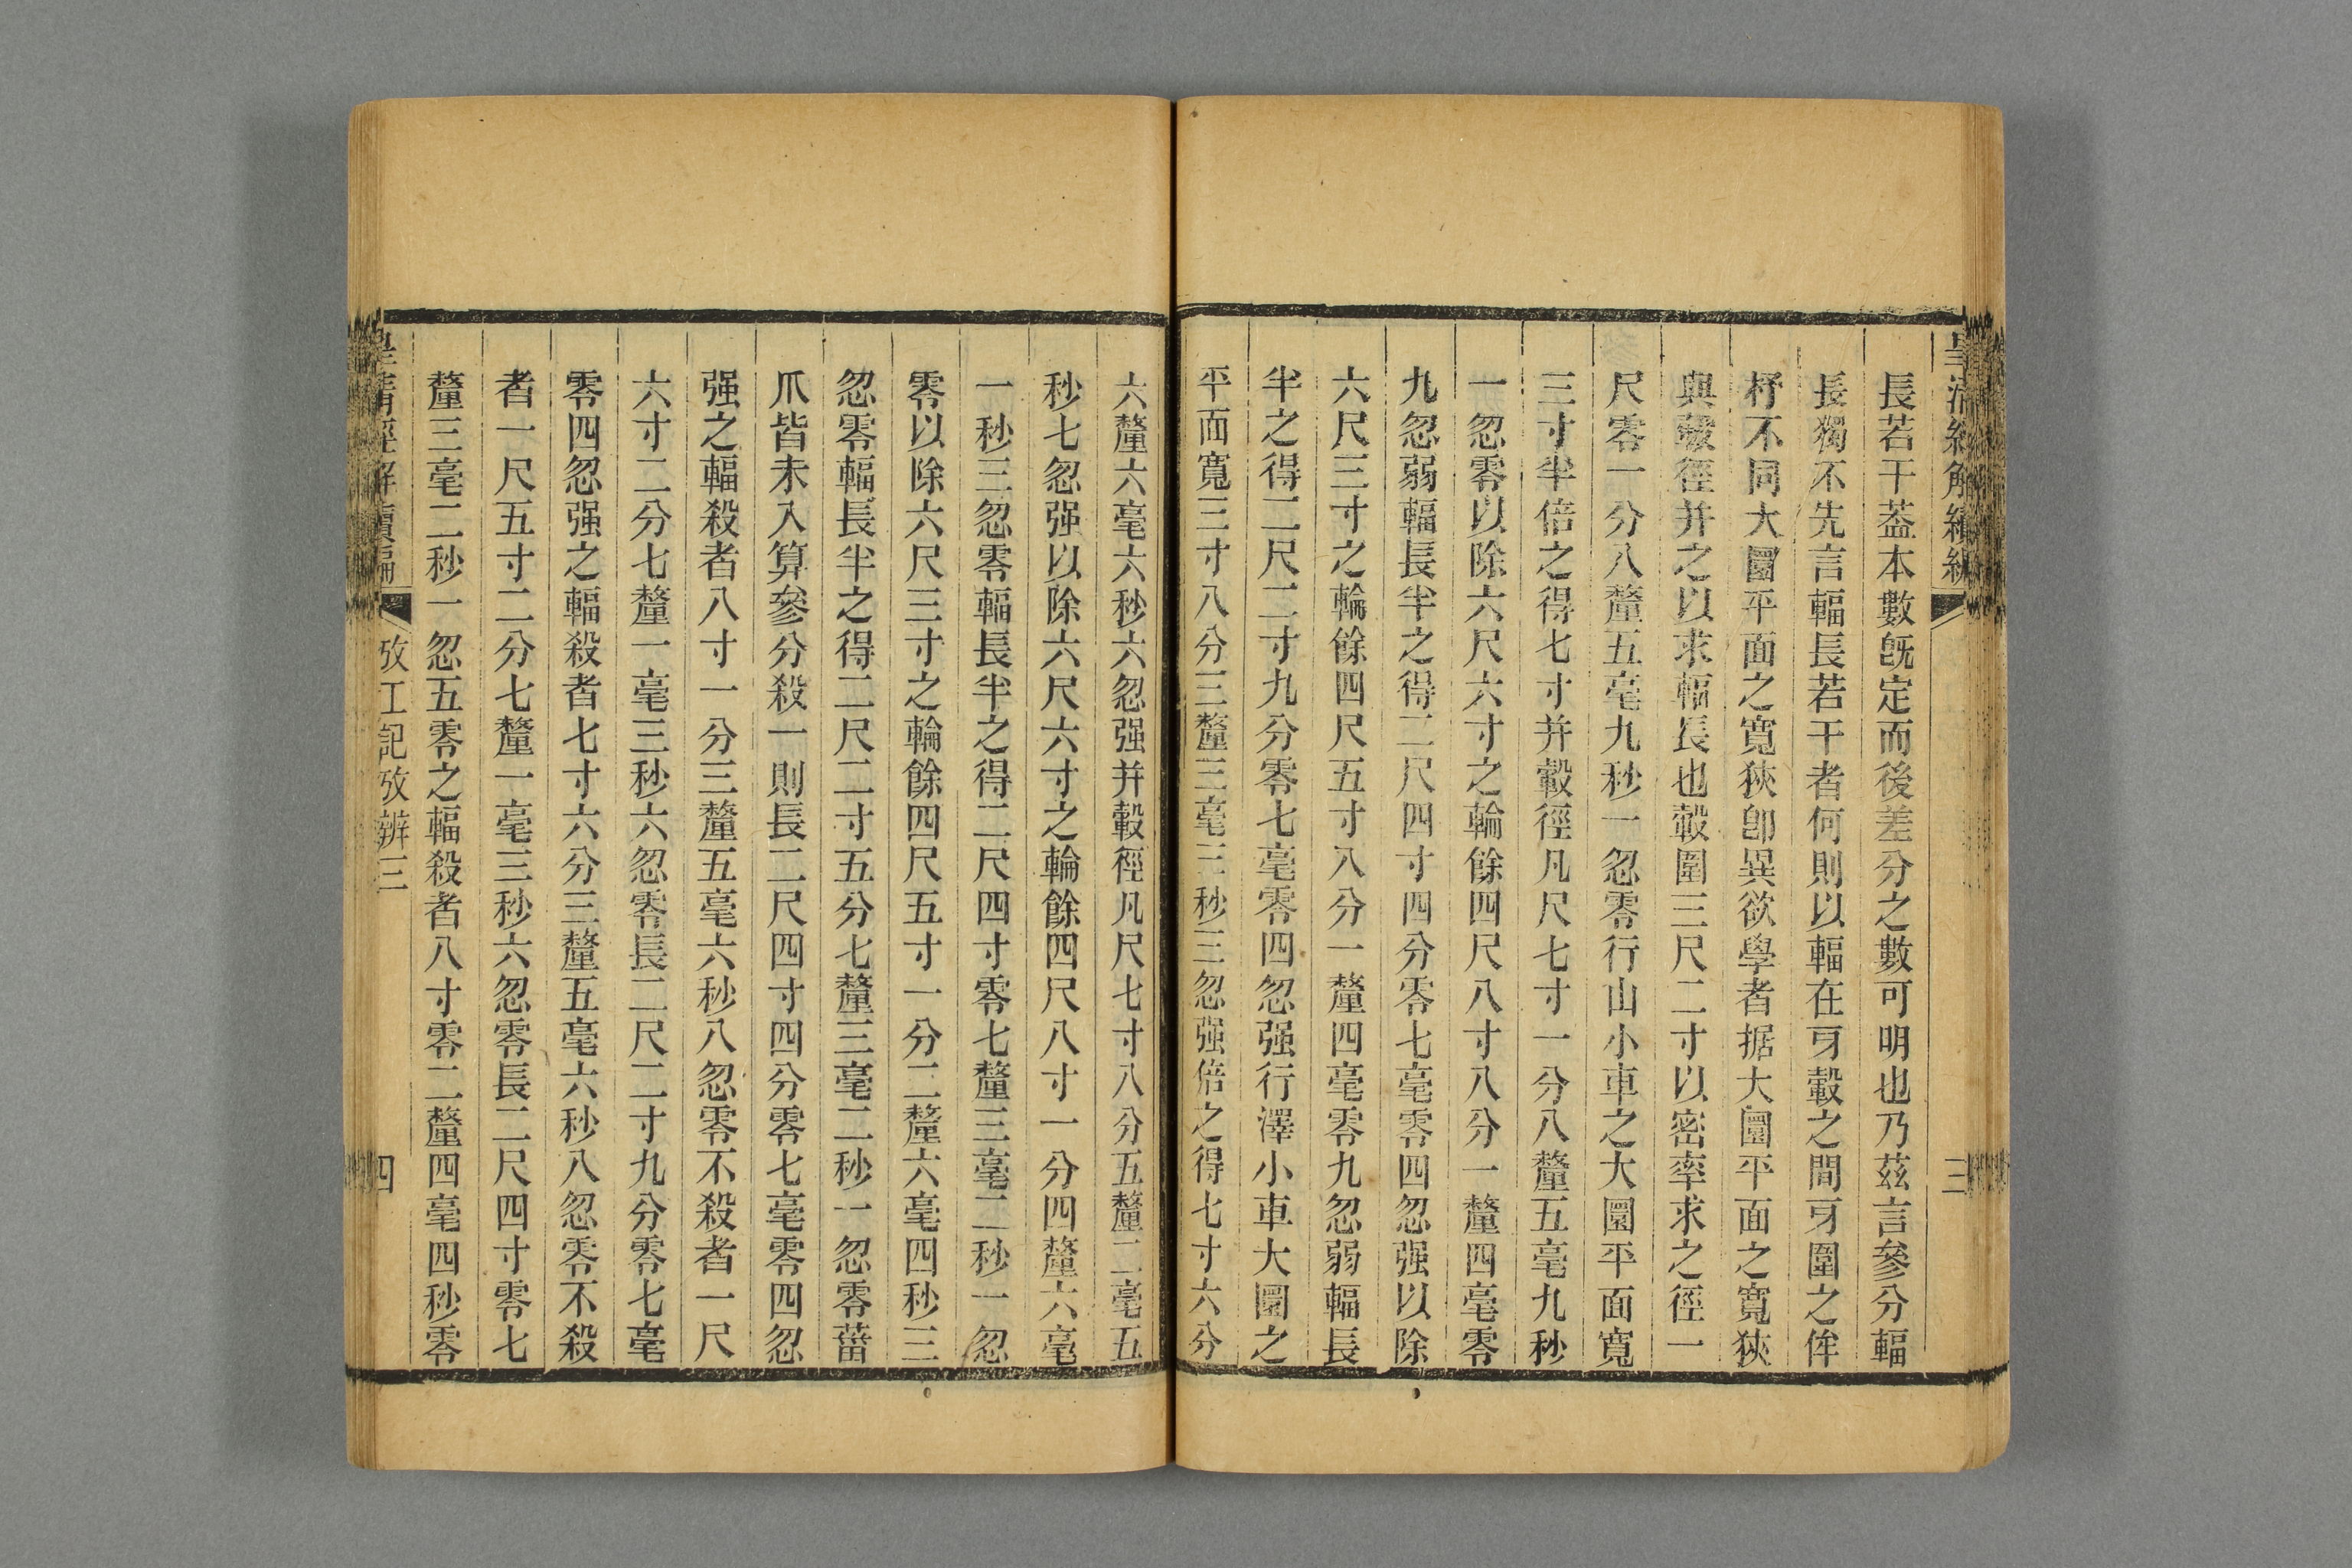 皇清經解續編
三
長若干葢本數旣定而後差分之數可明也乃茲言參分輻
長獨不先言輻長若干者何則以輻在牙轂之閒牙圍之侔
杼不同大圜平面之寬狹卽異欲學者据大圜平面之寬狹
與轂徑并之以求輻長也轂圍三尺二寸以密率求之徑一
尺零一分八釐五毫九秒一忽零行山小車之大圜平面寬
三寸半倍之得七寸并轂徑凡尺七寸一分八釐五毫九秒
一忽零以除六尺六寸之輪餘四尺八寸八分一釐四毫零
九忽弱輻長半之得二尺四寸四分零七毫零四忽强以除
六尺三寸之輪餘四尺五寸八分一釐四毫零九忽弱輻長
半之得二尺二寸九分零七毫零四忽强行澤小車大圜之
平面寬三寸八分三釐三毫三秒三忽强倍之得七寸六分
六釐六毫六秒六忽强并轂徑凡尺七寸八分五釐二毫五
秒七忽强以除六尺六寸之輪餘四尺八寸一分四釐六毫
一秒三忽零輻長半之得二尺四寸零七釐三毫二秒一忽
零以除六尺三寸之輪餘四尺五寸一分二釐六毫四秒三
忽零輻長半之得二尺二寸五分七釐三毫二秒一忽零菑
爪皆未入算參分殺一則長二尺四寸四分零七毫零四忽
强之輻殺者八寸一分三釐五毫六秒八忽零不殺者一尺
六寸二分七釐一毫三秒六忽零長二尺二寸九分零七毫
零四忽强之輻殺者七寸六分三釐五毫六秒八忽零不殺
者一尺五寸二分七釐一毫三秒六忽零長二尺四寸零七
釐三毫二秒一忽五零之輻殺者八寸零二釐四毫四秒零
皇清經解續編
攷工記攷辨三
四